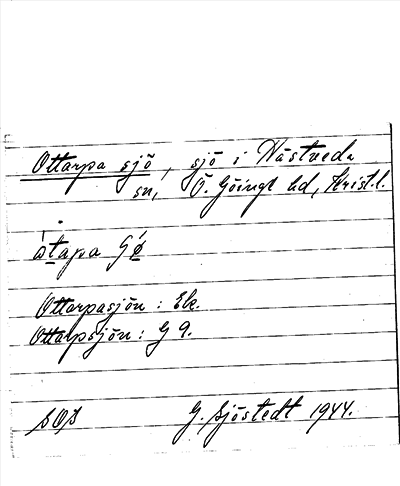 Ottarpa sjö, sjö i Nästveda
sn, Ö. Göinge hd, Krist.l.
åtapa
Ottarpasjön: Ek.
Ottarpsjön: G 9.
SOS G. Sjöstedt 1944.